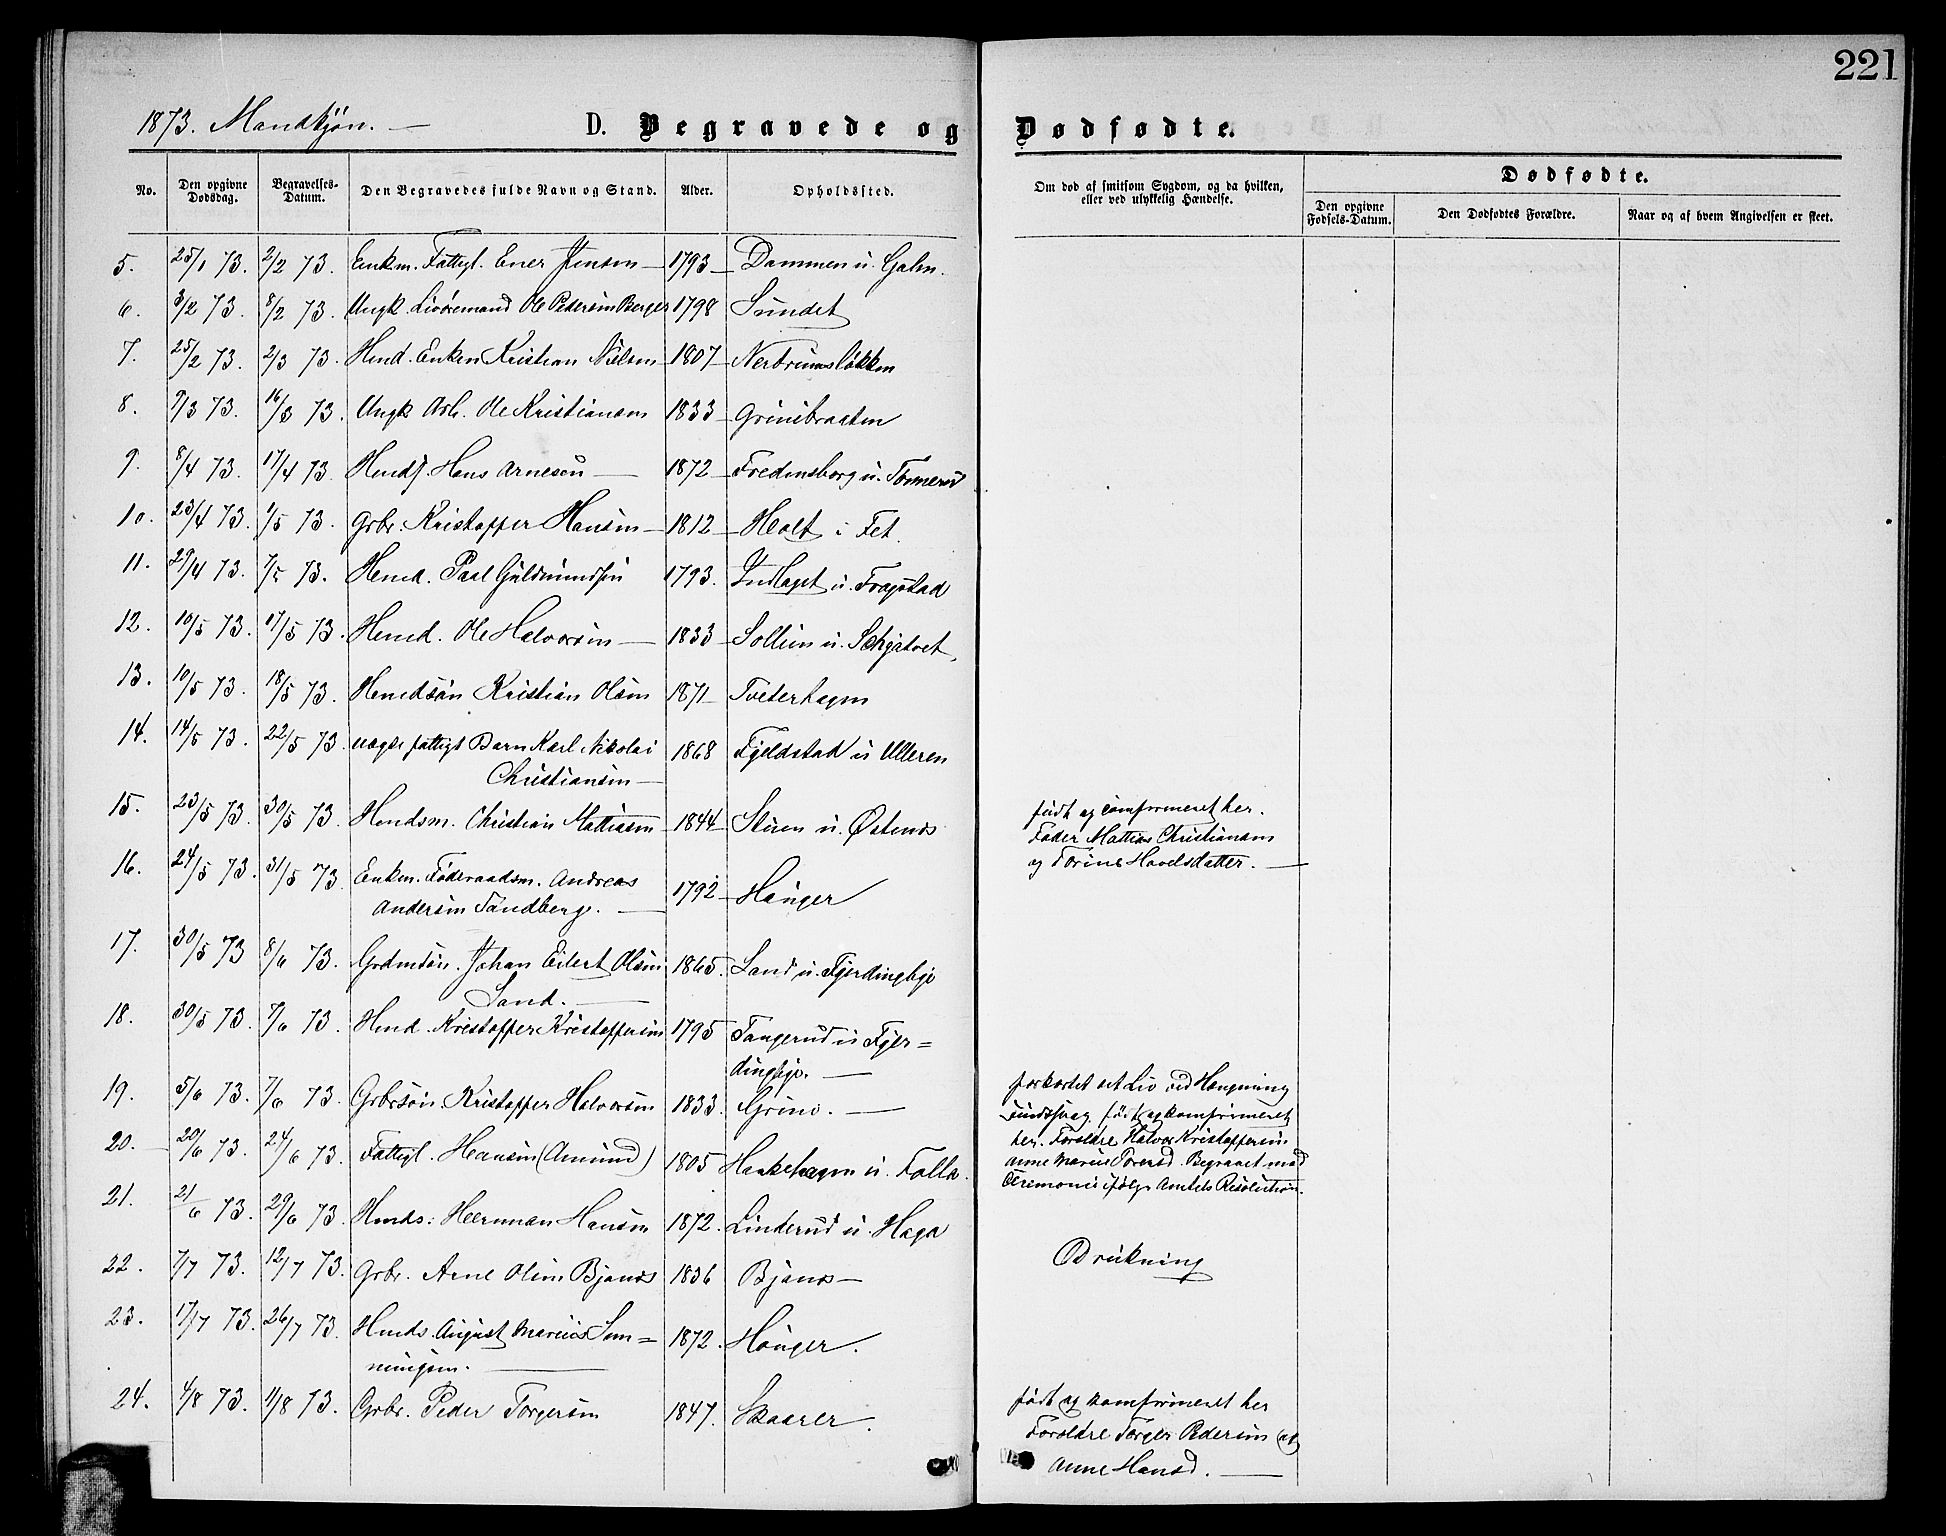 221
1873. Mandkjøn. —
D. Begravede og Dødfødte.
No. Den opgivne Dødsdag. Begravelses-Datum. Den Begravedes fulde Navn og Stand. Alder. Opholdssted. Om død af smitsom Sygdom, og da hvilken, eller ved ulykkelig Hændelse. Dødfødte.
Den opgivne Fødsels-Datum. Den Dødfødtes Forældre. Naar og af hvem Angivelsen er skeet.
5. 25/1 73. 2/2 73. Enkm. Fattigl. Ener Jenson — 1793 — Dammen u. Galm.
6. 3/2 73. 8/2 73. Ungk. Livøremand Ole Pedersen Berger 1798 Sundet
7. 25/2 73. 2/3 73. Husmd. Enkem Kristian Nielsen 1807 — Nerbrunsløkken
8. 9/3 73. 16/3 73. Ungk Arb. Ole Kristiansen 1833 — Grinibraaten
9. 8/4 73. 17/4 73. Hans Arnesen — 1872 — Fredensborg u. Tømmerud
10. 23/4 73. 1/5 73. Grbr. Kristoffer Hansen — 1812 — Holt i Fet.
11. 29/4 73. 7/5 73. Husmd. Paal Guldmundsen 1793. Indlaget u. Fragstad
12. 10/5 73. 17/5 73. Husmd. Ole Halvorsen — 1833 — Sollien u. Sehjatvet.
13. 10/5 73. 18/5 73. Husmdsøn Kristian Olsen 1871 — Tveterhagen
14. 14/5 73. 22/5 73. uægte fattigt Barn Karl Nikolai 1868 Fjeldstad u Ulleren
Christiansen —
15. 23/5 73. 30/5 73. Husmdsm. Christian Mattiasen — 1844 — Stuen u. Østenes født og comfirmeret her.
Fader Mattias Christiansen
og Torine Hovelsdatter. —
16. 24/5 73. 31/5 73. Enkm. Føderaadsm. Andreas
Andersen Sandberg. — 1792 — Hauger
17. 30/5 73 8/6 73. Grdmdsøn. Johan Eilert Olsen 1865. Sand u. Fjerdingbye
Sand. —
18. 30/5 73. 7/6 73. Husmd. Kristoffer Kristoffersen 1795 Tangerud u Fjer=
dingbye. —
19. 5/6 73. 7/6 73. Grbrsøn. Kristoffer Halvorsen 1833. Grini. — forkortet sit Liv ved Hængning
født og komfirmeret
her. Foreldre Halvor Kristoffersen
Anne Marie Begravet med
Ceremoni ifølge Amtets Resolution.
20. — 20/6 73. 24/6 73. Fattigl. Hansen (Amund) 1805 Hakehagen u. Falla.
21. 21/6 73. 29/6 73. Husmds: Herman Hansen 1872. Linderud u. Haga
22. 7/7 73. 12/7 73. Grbr. Arne Olsen Bjanes 1836 Bjanes — Drukning
23. 17/7 73. 26/7 73. Husmds. August Marius Sem=
mingsen. — 1872. Hauger.
24. 4/8 73. 11/8 73. Grbr. Peder Torgersen 1847. Skaarer. født og komfirmeret her
Foreldre Torger Pedersen og
Anne Hansd. —